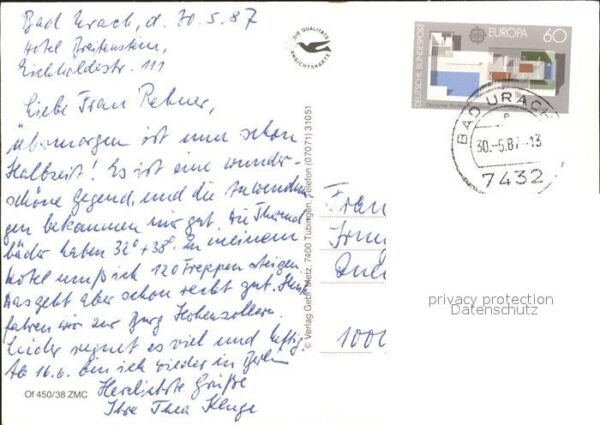 Bad Urach, d. 30.5.87
Hotel Breitenstein,
Eichhaldestr. 111
Liebe Frau Rebner,
übermorgen ist nun schon
Halbzeit! Es ist eine wunder-
schöne Gegend, und die Anwendun
gen bekommen mir gut. Die Thermal
bäder haben 32° + 38°. Zu meinem
Hotel muß ich 120 Treppen steigen.
Das geht aber schon recht gut. Heute
fahren wir zur Burg Hohenzollern.
Leider regnet es viel und heftig.
Ab 16.6. bin ich wieder in Berlin
Herzlichste Grüße
Ihre Thea Kluge
Of 450/38 ZMC
DIE QUALITÄTS
ANSICHTSKARTE
© Verlag Gebr. Metz, 7400 Tübingen, Telefon (07071) 31051
DEUTSCHE BUNDESPOST
EUROPA
60
BAD URACH
30.-5.87-13
7432
Frau
1000
privacy protection
Datenschutz